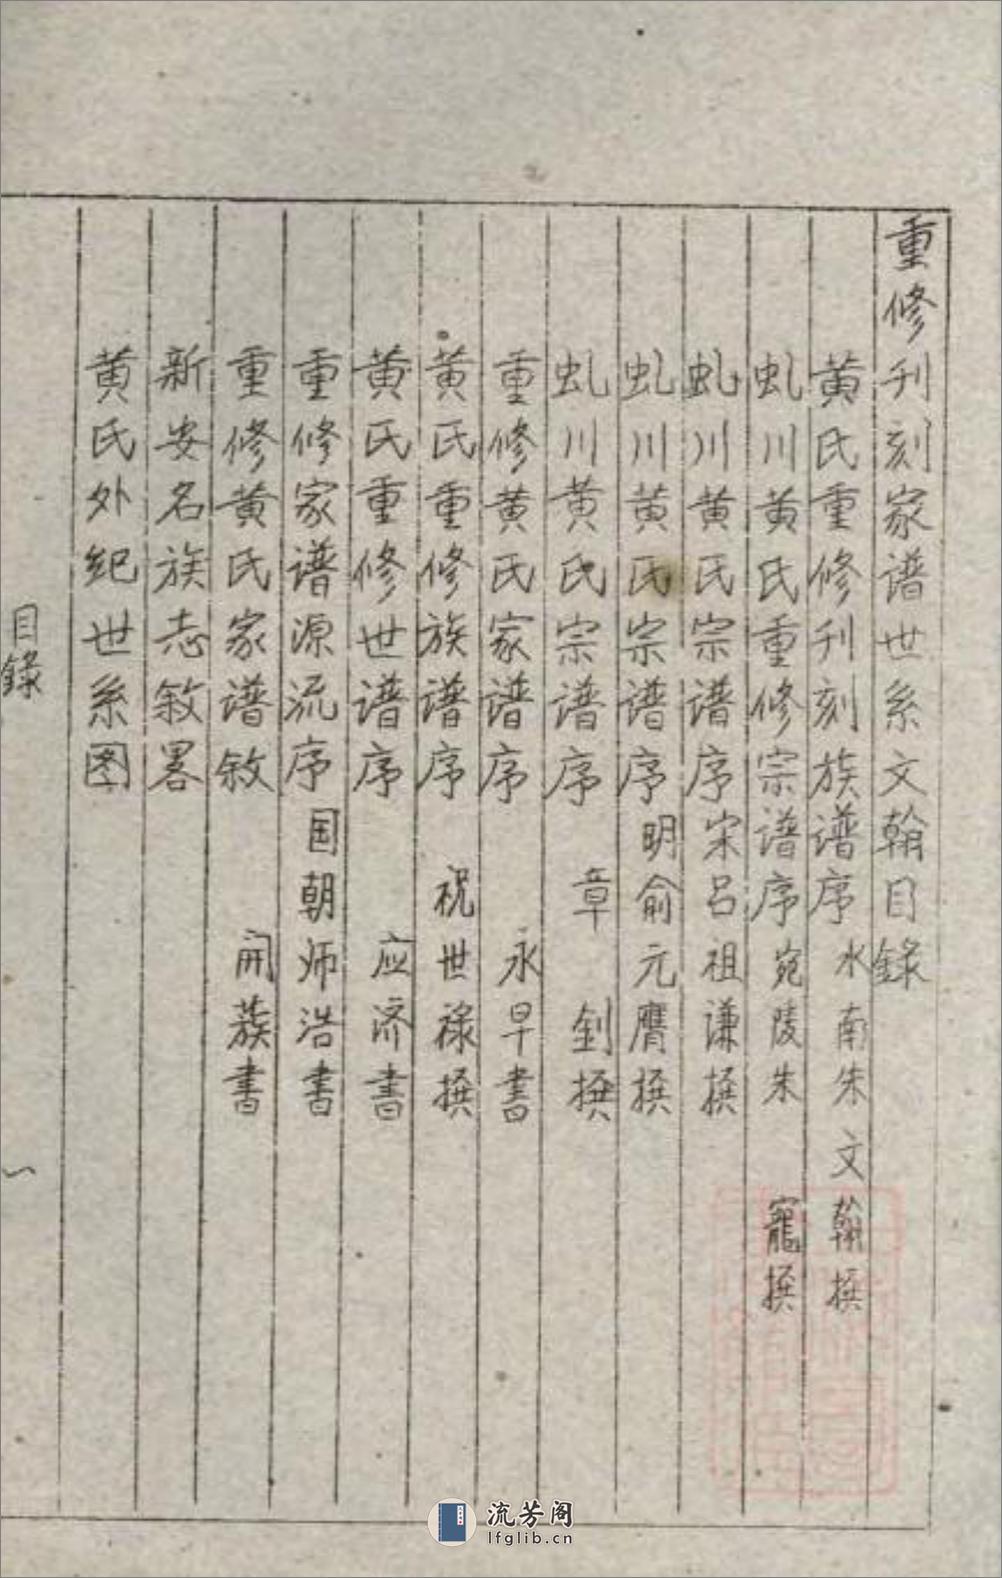 重修刊刻家谱世系文翰目錄
黄氏重修刊刻族谱序 水南朱文翰撰
虬川黄氏重修宗谱序 宛陵朱寵撰
虬川黄氏宗谱序 宋吕祖谦撰
虬川黄氏宗谱序 明俞元膺撰
虬川黄氏宗谱序 章钊撰
重修黄氏家谱序 永早書
黄氏重修族谱序 祝世禄撰
黄氏重修世谱序 应济書
重修家谱源流序 国朝师浩書
重修黄氏家谱敘 開蔟書
新安名族志敘畧
黄氏外紀世系图
目錄
一
流芳阁
lfglib.cn